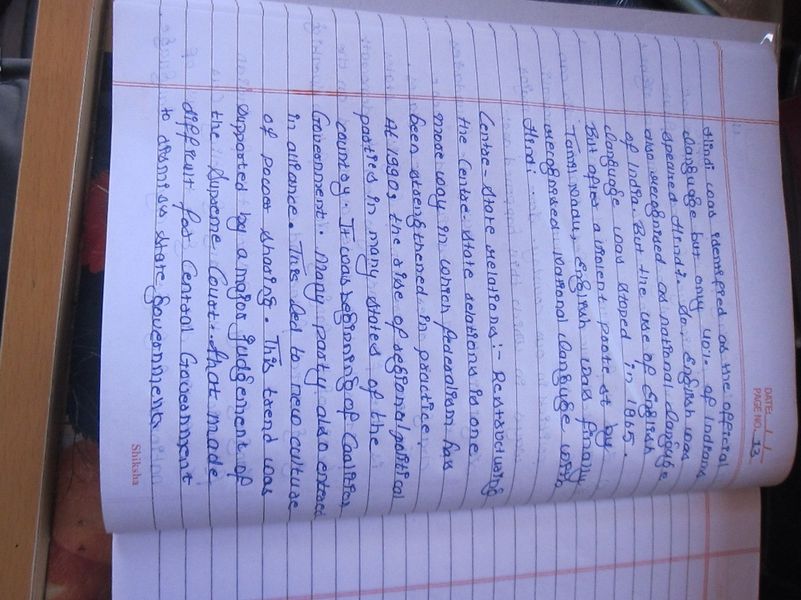 DATE: / /
PAGE NO.: 13
Hindi was identified as the official
language but only 40%. of Indians
speaked Hindi. So English was
also recognised as national language
of India. But the use of English
language was stoped in 1965.
But after a violent protest by
Tamil Nadu, English was finally
recognised National language with
Hindi.
Centre-State relations:- Restructuring
the Centre-State relations is one
more way in which federalism has
been strengthened in practice.
At 1990s the rise of regional political
parties in many states of the
country. It was beginning of Coalition
Government. Many party also entered
in alliance. This led to new culture
of power sharing. This trend was
supported by a major judgement of
the Supreme Court. that made
difficult for Central Government
to dismiss state governments
Shiksha